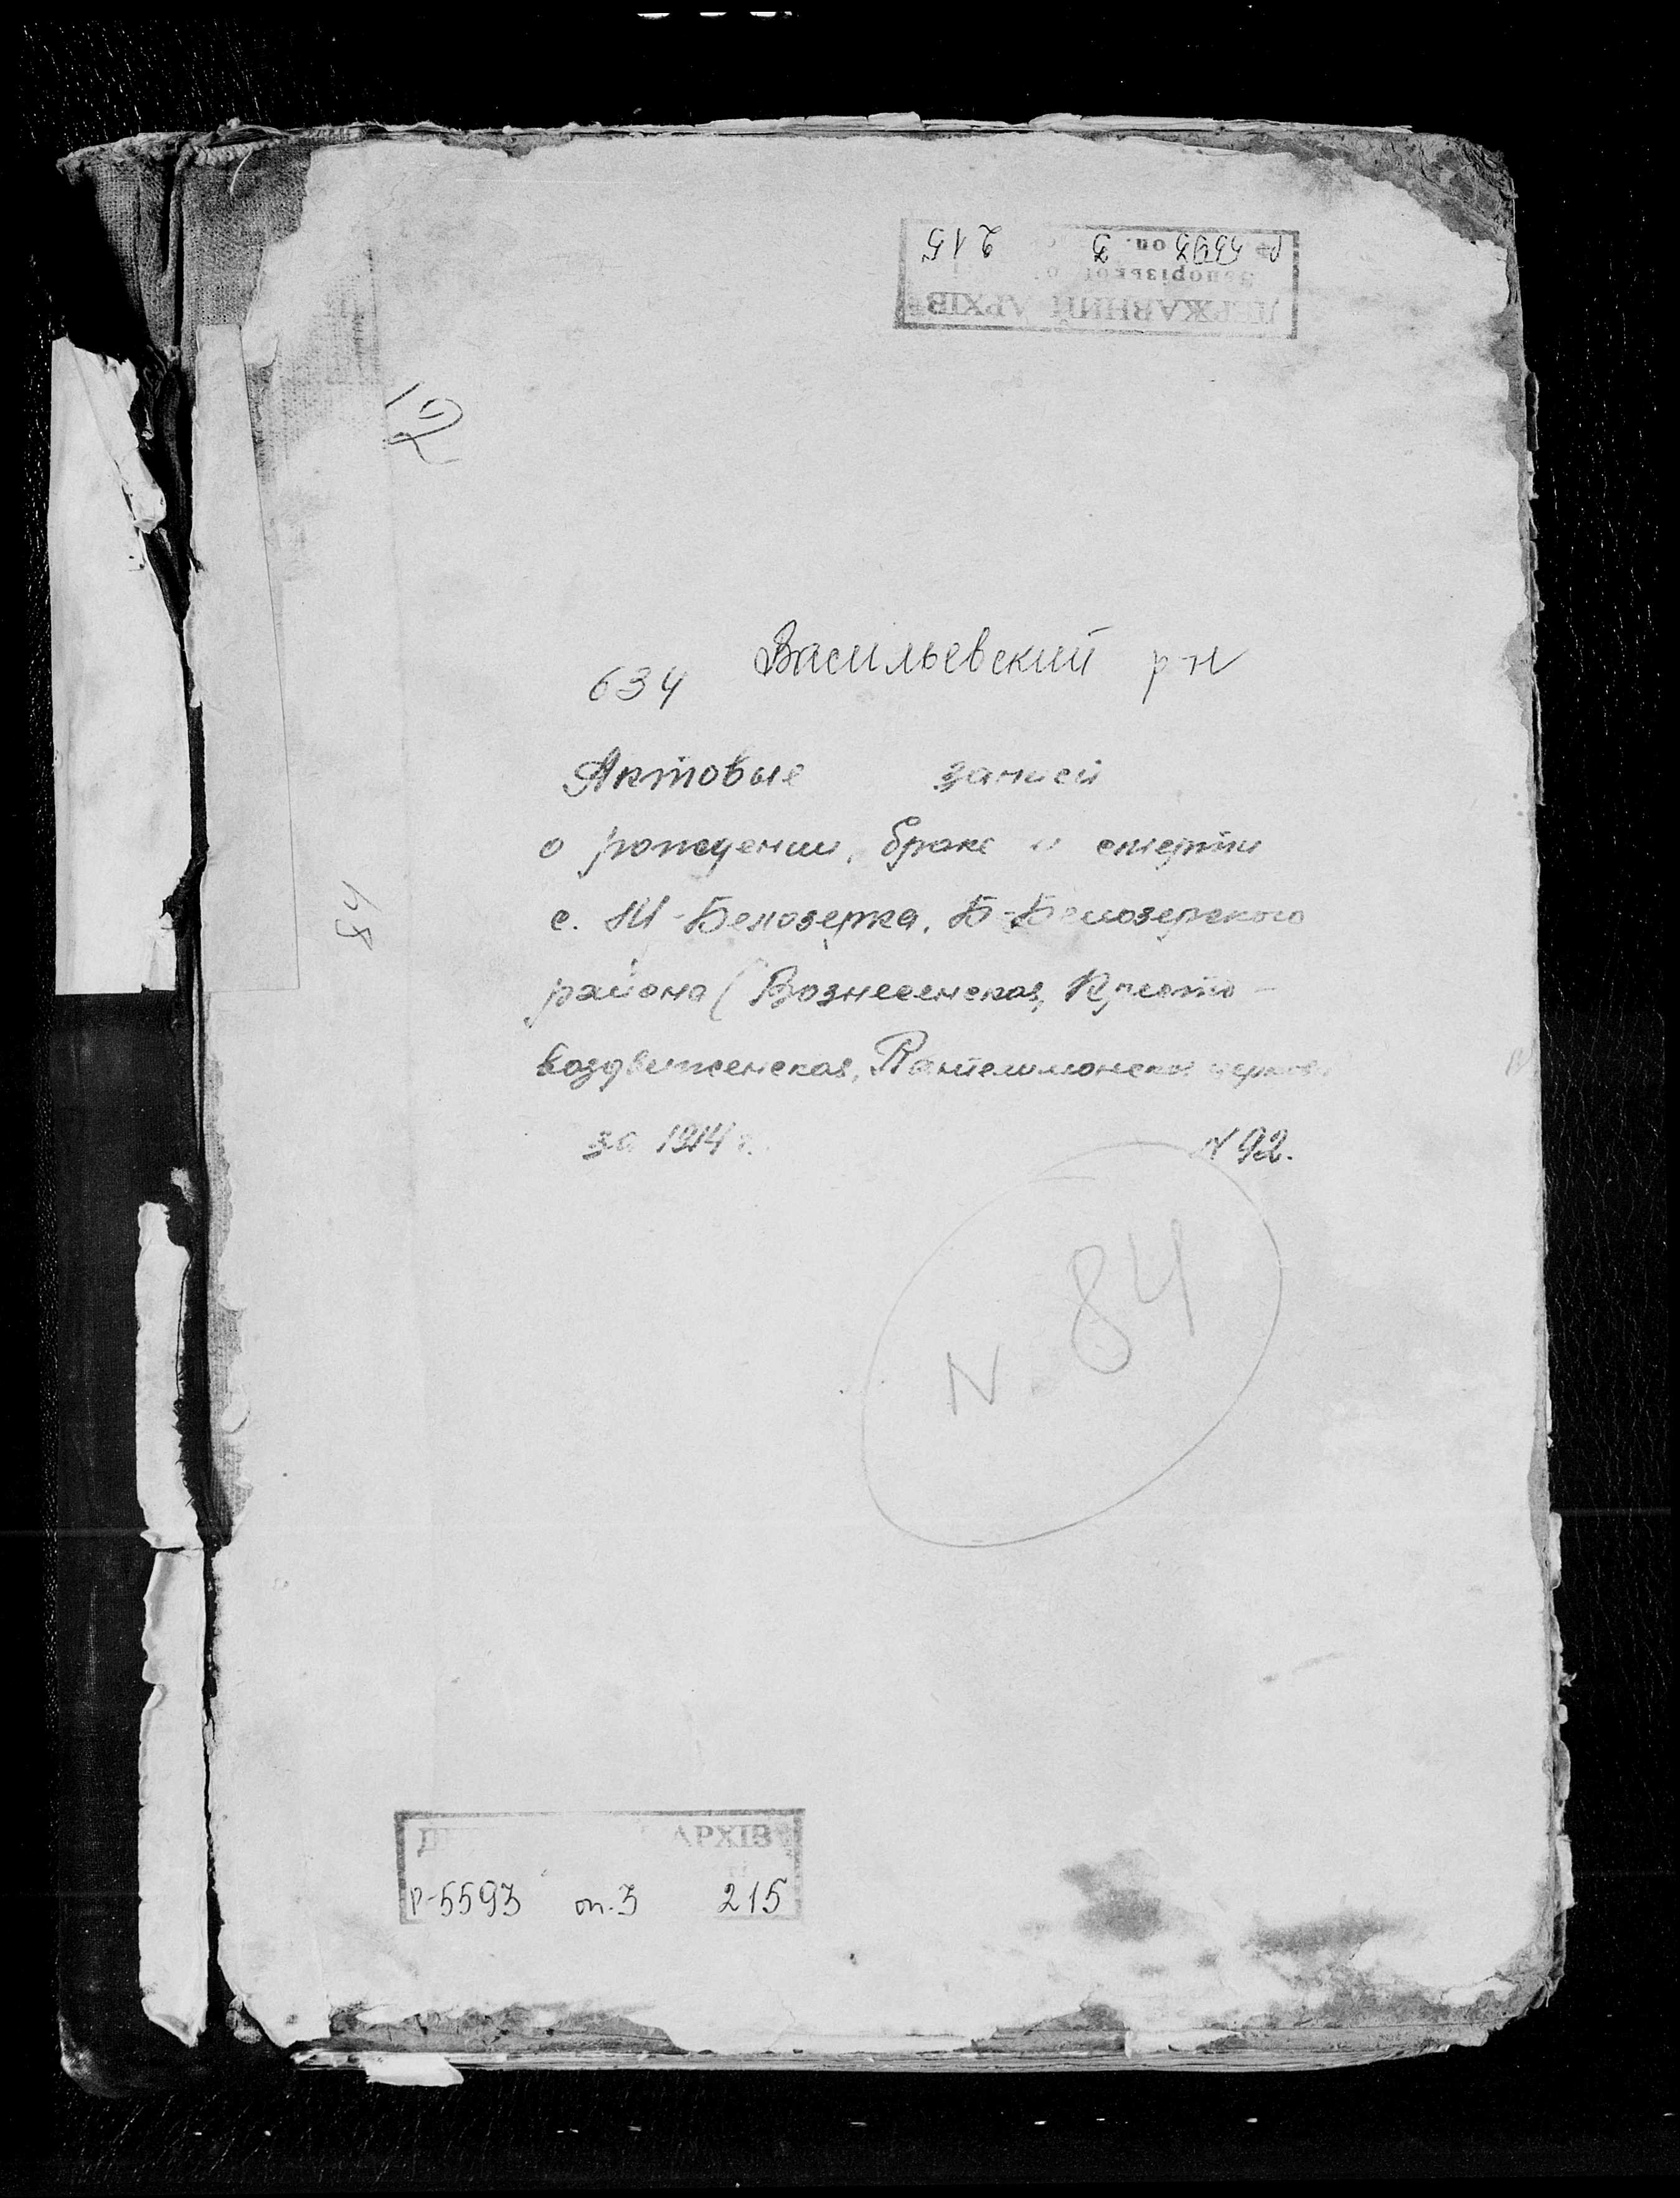 ДЕРЖАВНИЙ АРХІВ
Запорізької
Р 5593 оп. 3 215
19
Васильевский р-н
634
Актовые записи
о рождении, браке и смерти
с. М-Белозерка, Б-Белозерского
района (Вознесенская, Кресто-
воздвиженская, Пантелимонская церков
за 1914 г. N 92.
N 84
АРХІВ
Р-5593 оп. 3 215